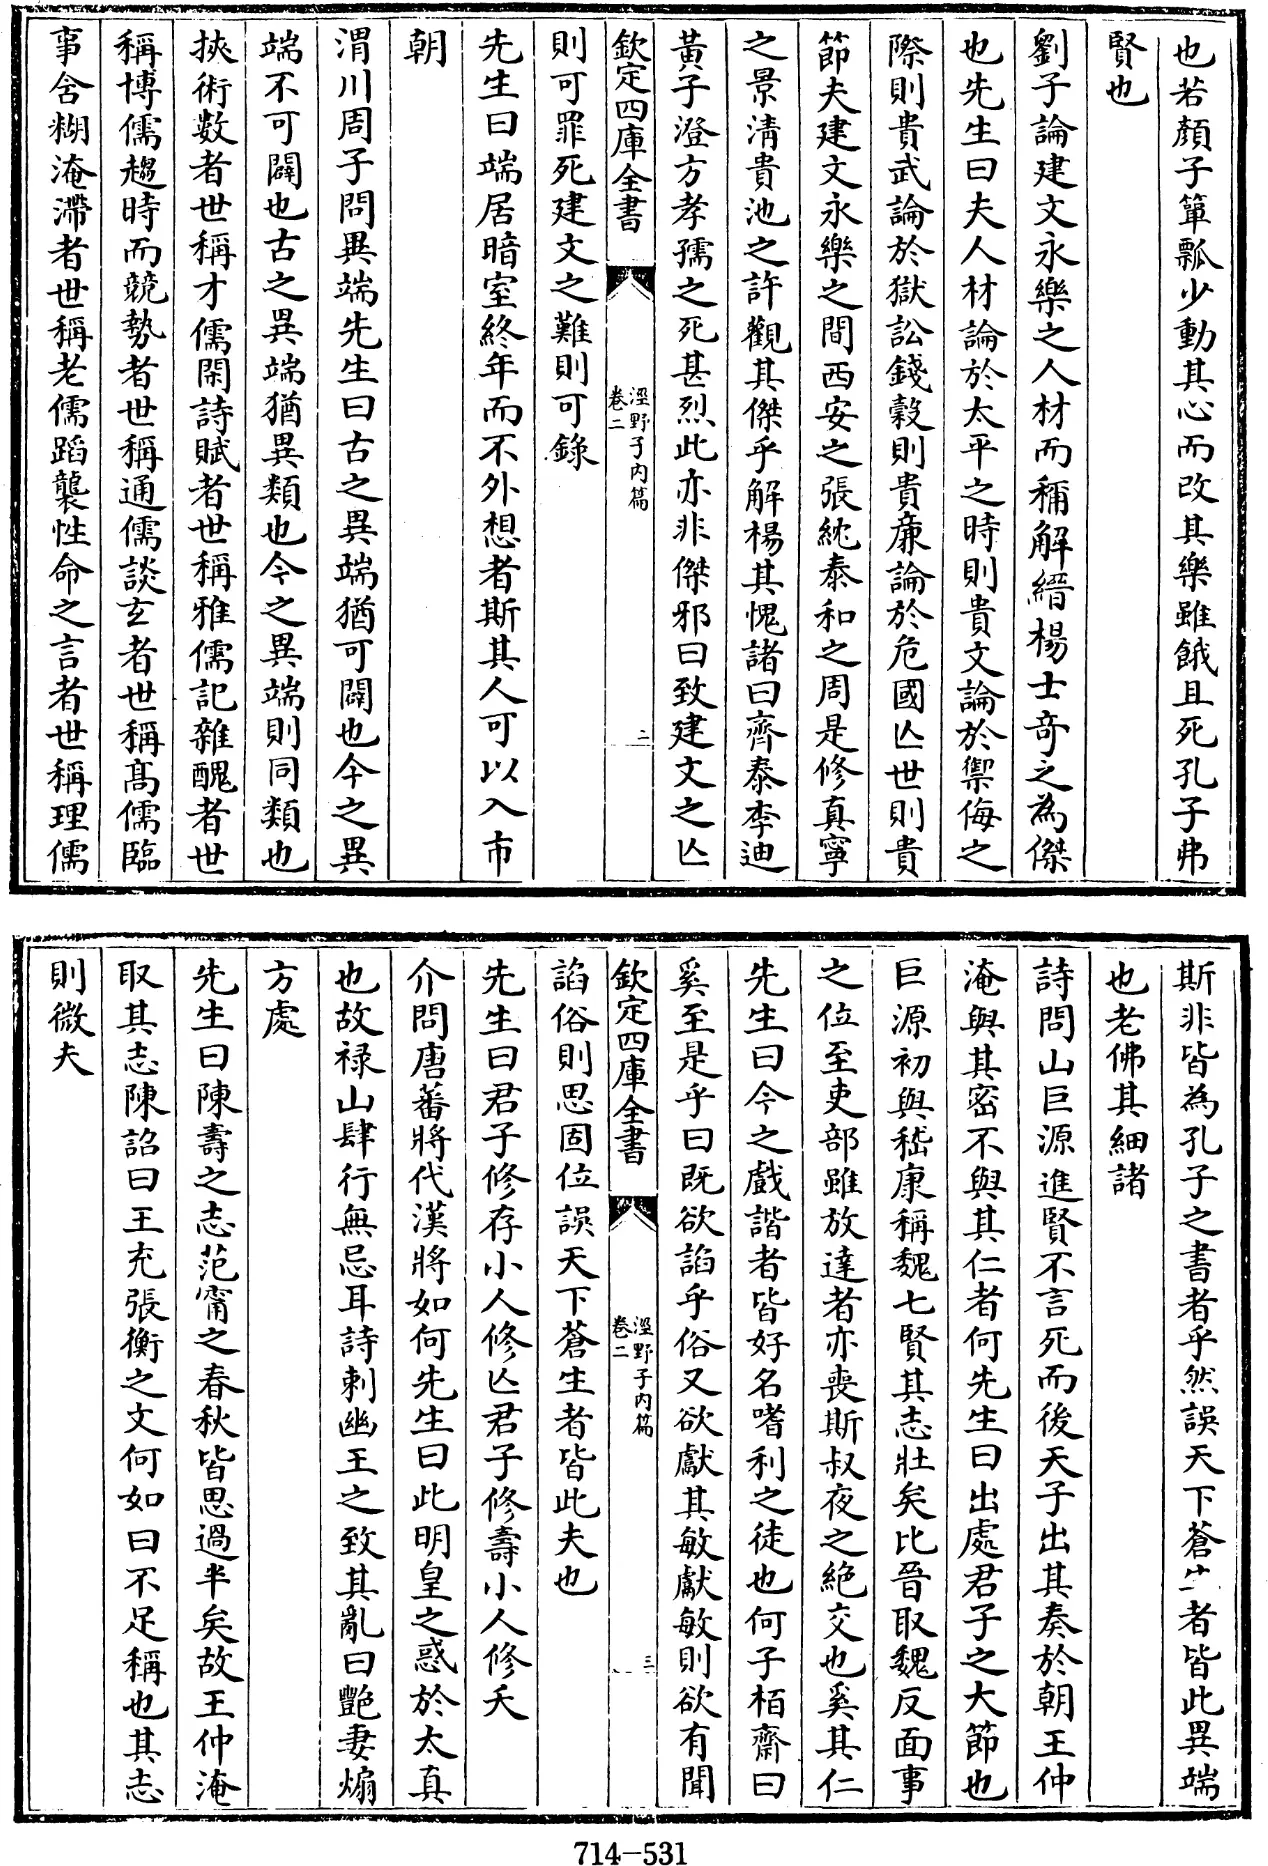 也若顏子簞瓢少動其心而改其樂雖餓且死孔子弗
賢也
劉子論建文永樂之人材而稱解縉楊士竒之為傑
也先生曰夫人材論於太平之時則貴文論於禦侮之
際則貴武論於獄訟錢榖則貴廉論於危國亾世則貴
節夫建文永樂之間西安之張紞泰和之周是修真寧
之景清貴池之許觀其傑乎解楊其愧諸曰齊泰李廸
黃子澄方孝孺之死甚烈此亦非傑邪曰致建文之亾
欽定四庫全書
涇野子内篇
卷二
二
則可罪死建文之難則可錄
先生曰端居暗室終年而不外想者斯其人可以入市
朝
渭川周子問異端先生曰古之異端猶可闢也今之異
端不可闢也古之異端猶異類也今之異端則同類也
挾術數者世稱才儒閑詩賦者世稱雅儒記雜醜者世
稱博儒趨時而競勢者世稱通儒談玄者世稱髙儒臨
事含糊淹滯者世稱老儒蹈襲性命之言者世稱理儒
斯非皆為孔子之書者乎然誤天下蒼生者皆此異端
也老佛其細諸
詩問山巨源進賢不言死而後天子出其奏於朝王仲
淹與其宻不與其仁者何先生曰出處君子之大節也
巨源初與嵇康稱魏七賢其志壯矣比晉取魏反面事
之位至吏部雖放達者亦喪斯叔夜之絶交也奚其仁
先生曰今之戲諧者皆好名嗜利之徒也何子栢齋曰
奚至是乎曰既欲謟乎俗又欲獻其敏獻敏則欲有聞
欽定四庫全書
涇野子内篇
卷二
三
謟俗則思固位誤天下蒼生者皆此夫也
先生曰君子修存小人修亾君子修壽小人修夭
介問唐蕃將代漢將如何先生曰此明皇之惑於太真
也故禄山肆行無忌耳詩刺幽王之致其亂曰艶妻煽
方處
先生曰陳壽之志范甯之春秋皆思過半矣故王仲淹
取其志陳詔曰王充張衡之文何如曰不足稱也其志
則微夫
714-531